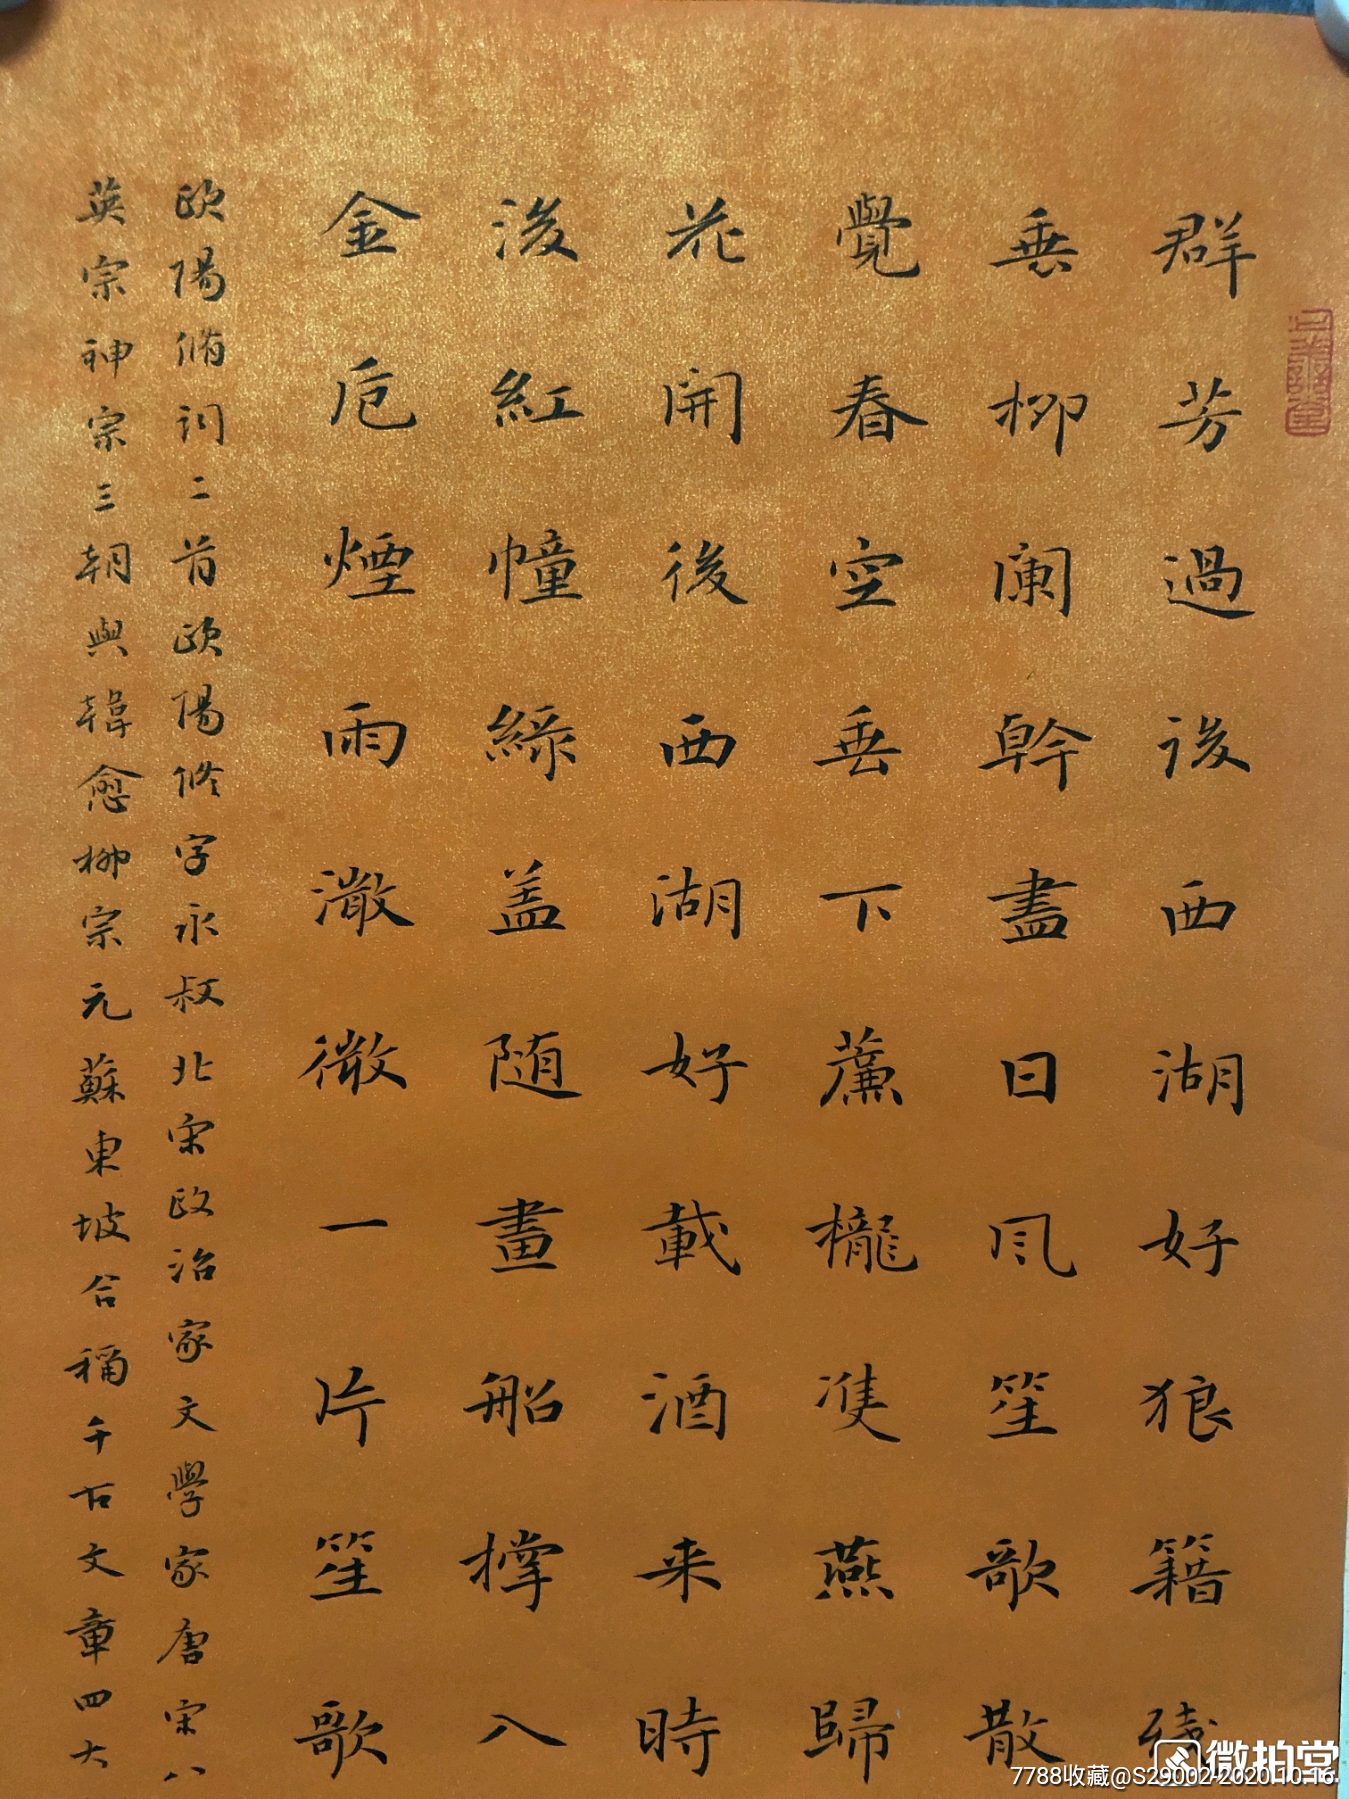 群芳過後西湖好狼籍残
垂柳阑幹盡日风笙歌散
覺春空垂下薕櫳雙燕歸
花開後西湖好載酒来時
後紅幢綠盖随畫船撑入
金卮煙雨潵微一片笙歌
欧陽脩词二首欧陽修字永叔北宋政治家文學家唐宋八
英宗神宗三朝與韓愈柳宗元蘇東坡合稱千古文章四大
微拍堂
7788收藏@S29002-2020.10.16